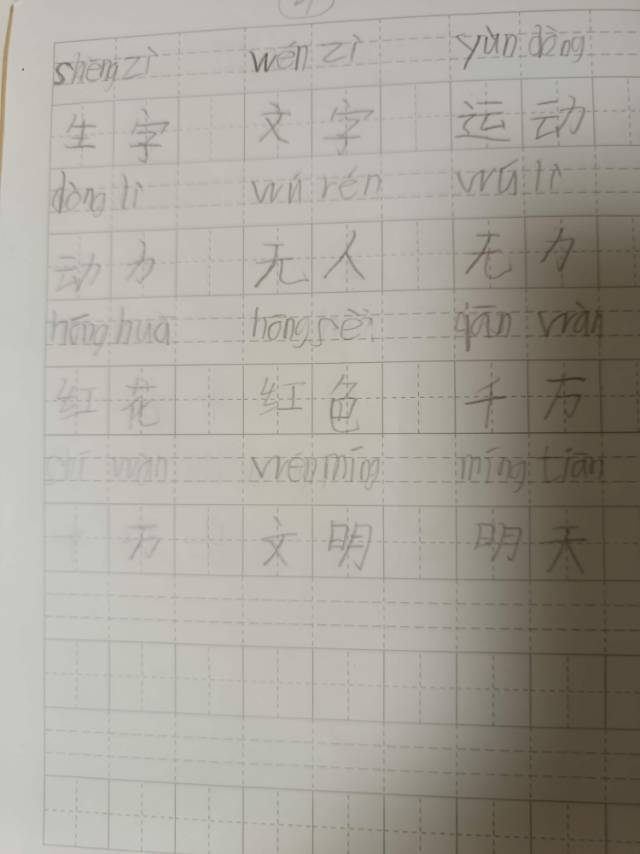 shēng zì wén zì yùn dòng
生字 文字 运动
dòng lì wú rén wú lì
动力 无人 无力
hóng huā hóng sè qān wàn
红花 红色 千万
shí wàn wén míng míng tiān
十万 文明 明天